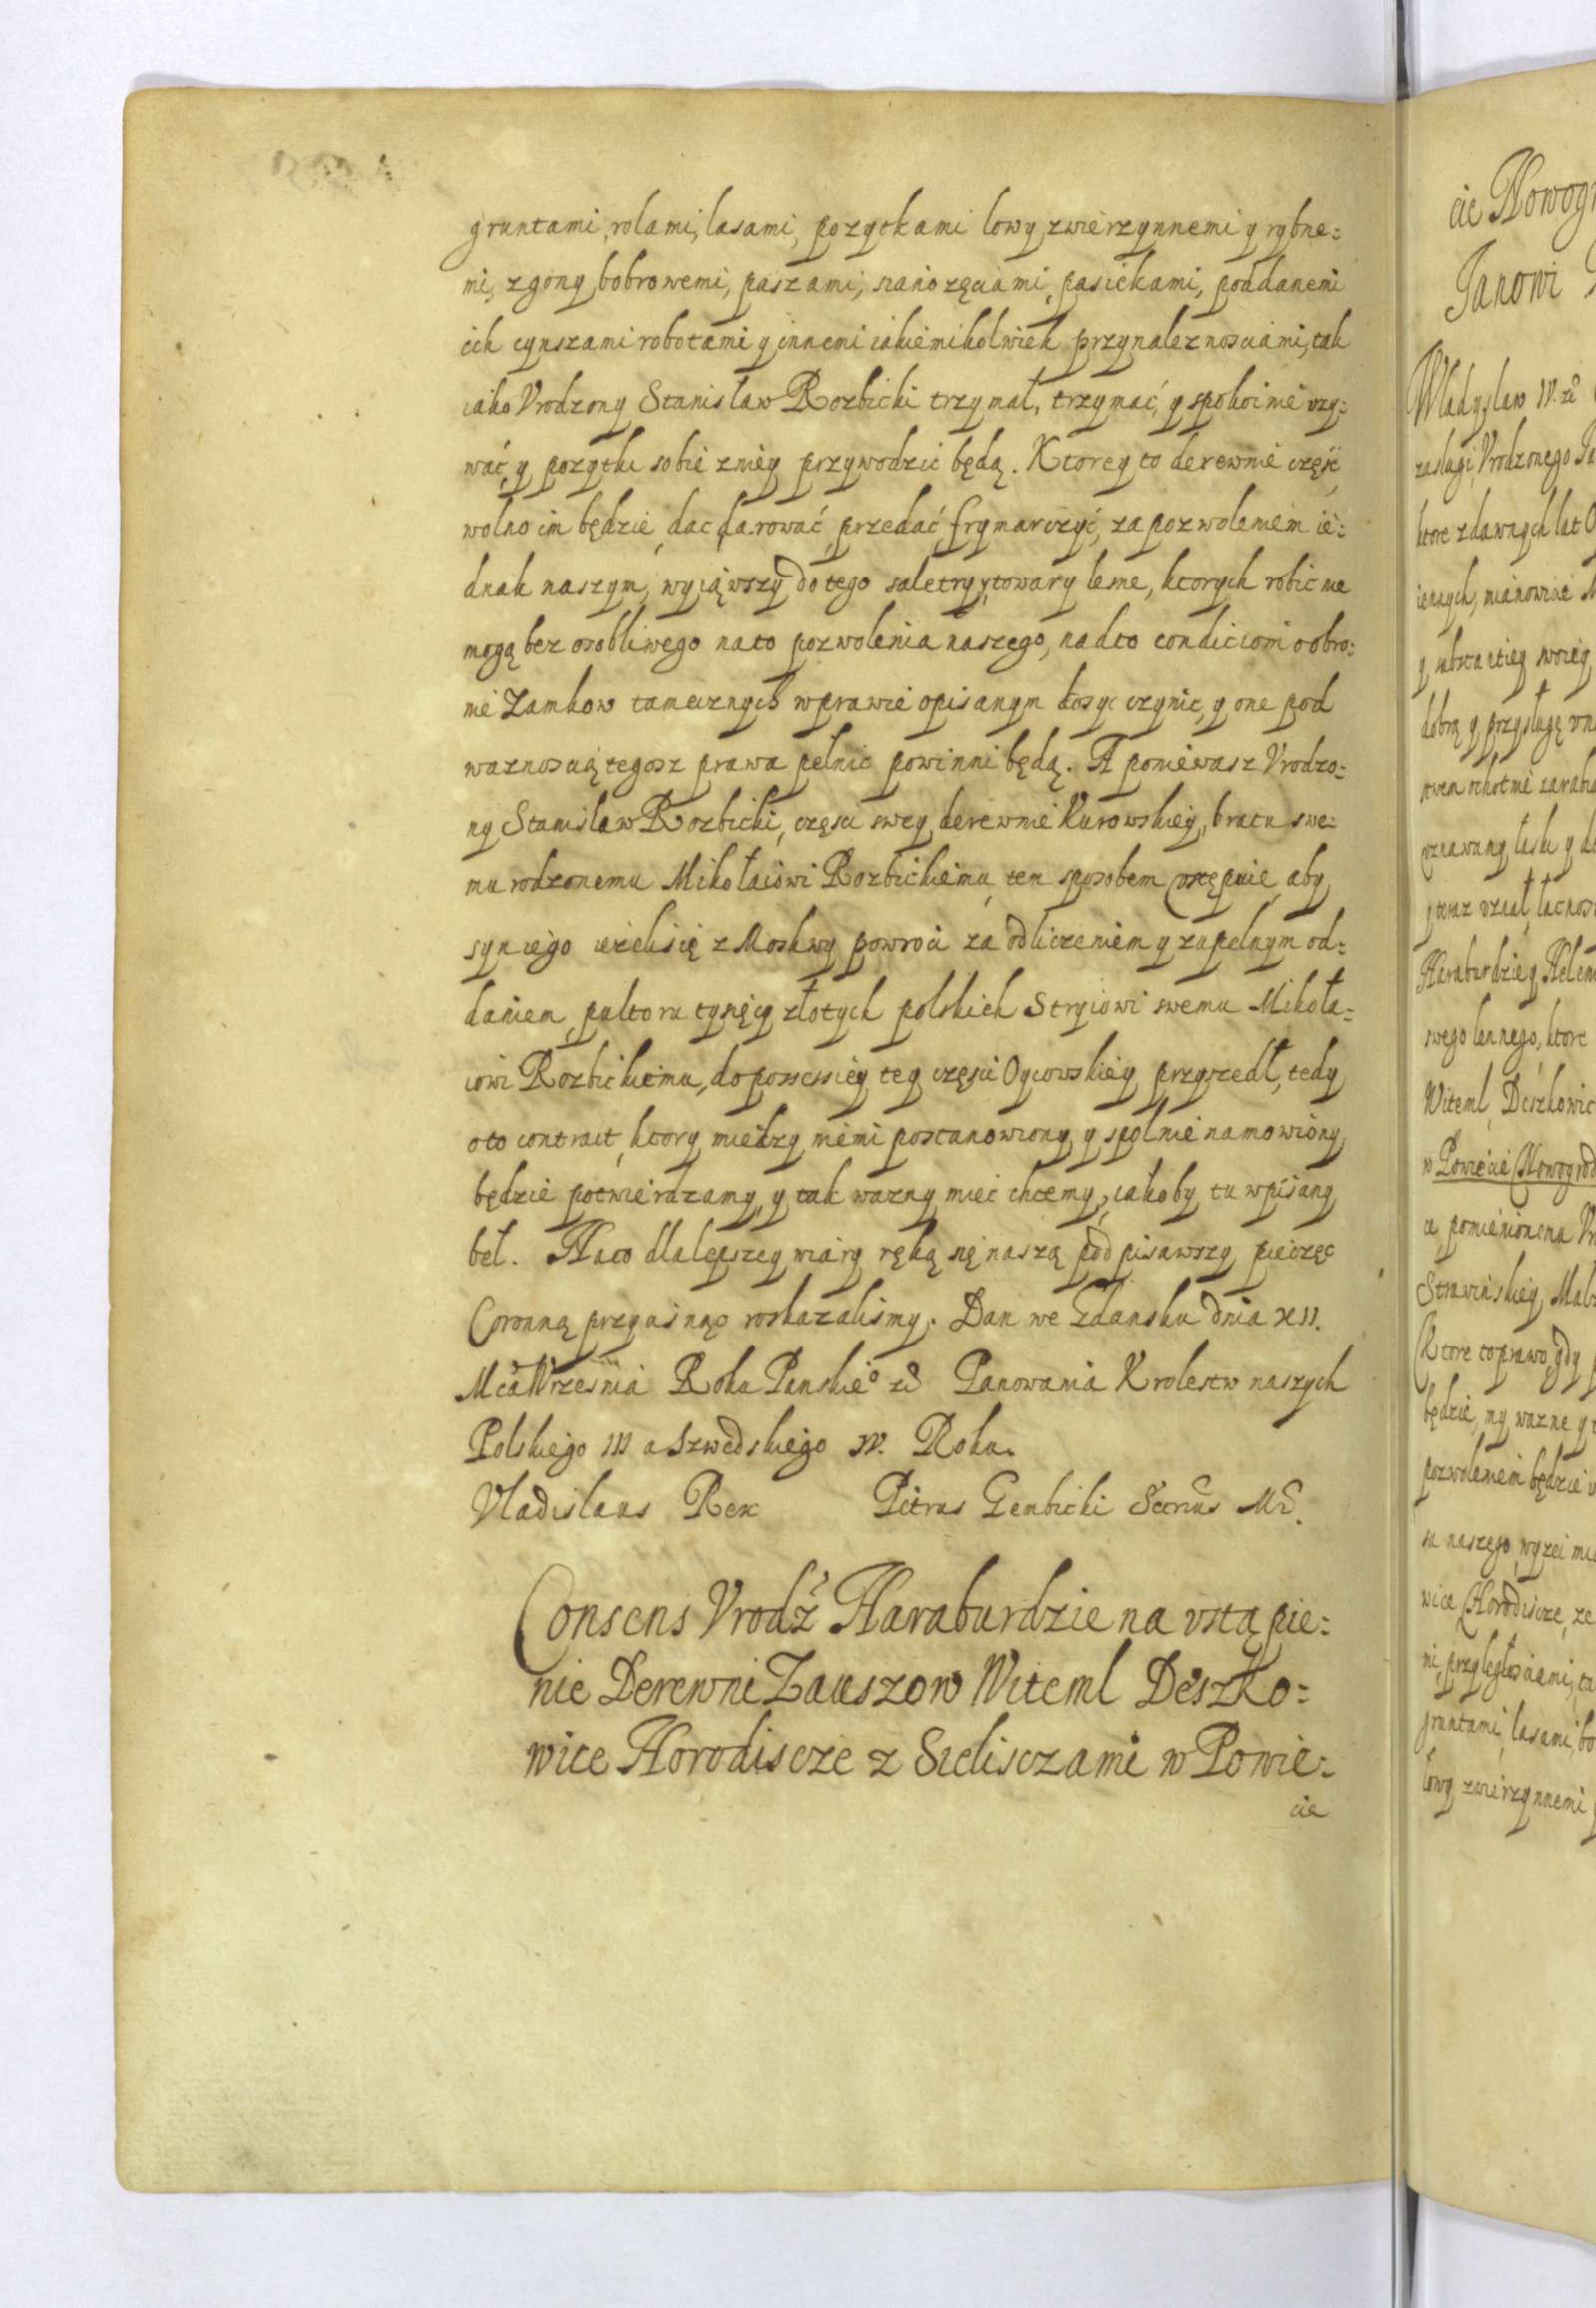 gruntami, rolami, lasami, pozytkami lowy zwierzynnemi y rybne=
mi, zgony bobrowemi, paszami, sianozęciami, pasiekami, poddanemi
ich cynszami robotami y innemi iakiemikolwiek przynaleznosciami, tak
iako Vrodzony Stanisław Rozbicki trzymał, trzymać, y spokoinie vzy=
wać, y pozytki sobie zniey przywodzic będą. Ktorey to derewnie część
wolno im będzie, dac, darować, przedać frymarczyć, za pozwoleniem ie=
dnak naszym, wyiąwszy do tego saletry, y towary lesne, ktorych robic nie
mogą bez osobliwego na to pozwolenia naszego, nadto condiciom o obro=
nie Zamkow tamecznych w prawie opisanym dosyc czynic, y one pod
waznoscią tegosz prawa pełnic powinni będą. A poniewasz Vrodzo=
ny Stanisław Rozbicki, częsci swey, derewnie Kurowskiey, bratu swe=
mu rodzonemu Mikołaiowi Rozbickiemu, tem sposobem vstępuie, aby
syn iego iezeli się z Moskwy powroci za odliczeniem y zupełnym od=
daniem, pułtora tysięcy złotych polskich Stryiowi swemu Mikoła=
iowi Rozbickiemu, do possessiey tey częsci Oycowskiey przyszedł, tedy
oto contract, ktory miedzy niemi postanowiony y spolnie namowiony
będzie potwierdzamy, y tak wazny miec chcemy, iakoby tu wpisany
beł. Naco dla lepszey wiary ręką się naszą podpisawszy pieczęc
Coronną przycisnąc roskazalismy. Dan we Gdansku dnia XII.
Mca Wrzesnia Roku Panskie° zć Panowania Krolestw naszych
Polskiego III a Szwedskiego IV. Roku.
Vladislaus Rex Petrus Gembicki Secrius Mr.
Consens Vrodź Haraburdzie na vstąpie=
nie Derewni Zauszow Witeml Deszko=
wice Horodiscze z Sieliszczami w Powie=
cie
cie Nowogr
Janowi
Władysław IV. zć
zasługi Vrodzonego
ktore z dawnych lat
swego lennego, ktore
Witeml, Deszkowic
w Powiecie Nowogrod
Ktore to prawo, gdy
będzie, my wazne y
pozwoleniem będzie
su naszego wyzei
wice Horodiscze, ze
gruntami, lasami, bo
łowy zwierzynnemi